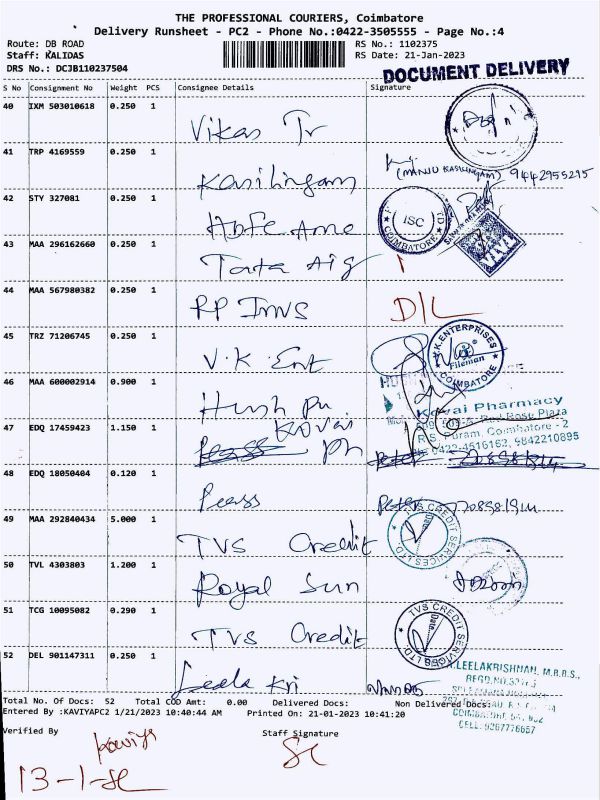 THE PROFESSIONAL COURIERS, Coimbatore
Delivery Runsheet - PC2 - Phone No.:0422-3505555 - Page No.:4
Route: DB ROAD RS No.: 1102375
Staff: KALIDAS RS Date: 21-Jan-2023
DRS No.: DCJB110237504
DOCUMENT DELIVERY
S No Consignment No Weight PCS Consignee Details Signature
40 IXM 503010618 0.250 1 Vikas Tr
41 TRP 4169559 0.250 1 Kasilingam (MANJU KASILINGAM) 9442955295
42 STY 327081 0.250 1 ISC COIMBATORE
43 MAA 296162660 0.250 1 Tata Aig
44 MAA 567980382 0.250 1 RP Invs D/L
45 TRZ 71206745 0.250 1 V.K. Ent V.K.ENTERPRISES Fileman COIMBATORE
46 MAA 600002914 0.900 1 Hush pu
47 EDQ 17459423 1.150 1 Kovai ph Kovai Pharmacy
Red Rose Plaza
R.S. Puram, Coimbatore - 2
0422-4516162, 9842210895
48 EDQ 18050404 0.120 1 Pearss Peter
49 MAA 292840434 5.000 1 TVS Credit TVS CREDIT SERVICES LTD Date
50 TVL 4303803 1.200 1 Royal Sun
51 TCG 10095082 0.290 1 TVS Credit TVS CREDIT SERVICES LTD Date
52 DEL 901147311 0.250 1 Leela Kri LEELAKRISHNAN, M.B.B.S.,
REGD.NO.
CELL:
Total No. Of Docs: 52 Total COD Amt: 0.00 Delivered Docs: Non Delivered Docs:
Entered By :KAVIYAPC2 1/21/2023 10:40:44 AM Printed On: 21-01-2023 10:41:20
Verified By Staff Signature
kaviya
13-1-se